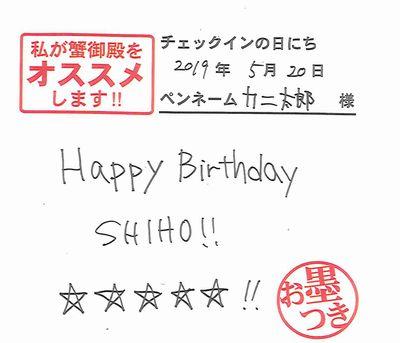 私が蟹御殿を
オススメ
します!!
チェックインの日にち
2019年 5月 20日
ペンネーム カニ太郎 様
Happy Birthday
SHIHO!!
☆☆☆☆☆!!
お墨
つき